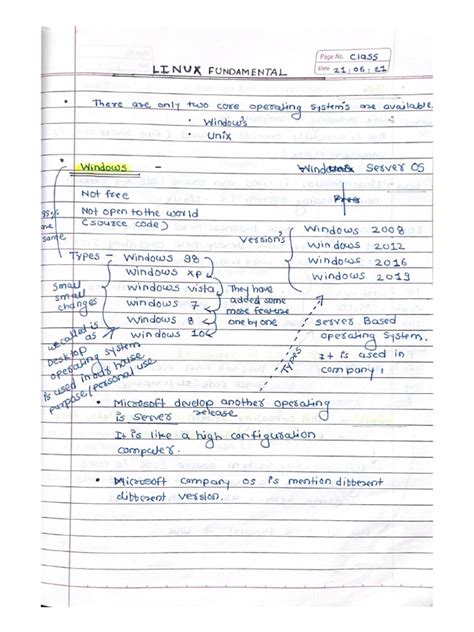 Page No. Class
Date 21/06/21
LINUX FUNDAMENTAL
• There are only two core operating system's are available.
• Window's
• Unix
• Windows -
Not free
Not open to the world
(source code)
95% are same
Types - Windows 98
Windows xp
Windows vista
Windows 7
Windows 8
Windows 10
They have
added some
more feature
one by one
small
small
changes
we called is
as
Desktop
operating system
Is used in our house
purpose/personal use
Windows Server OS
Version's
Windows 2008
Windows 2012
Windows 2016
Windows 2019
Types
server Based
operating system.
It is used in
company
• Microsoft develop another operating
is server release
It is like a high configuration
computer.
• Microsoft company os is mention different
different version.